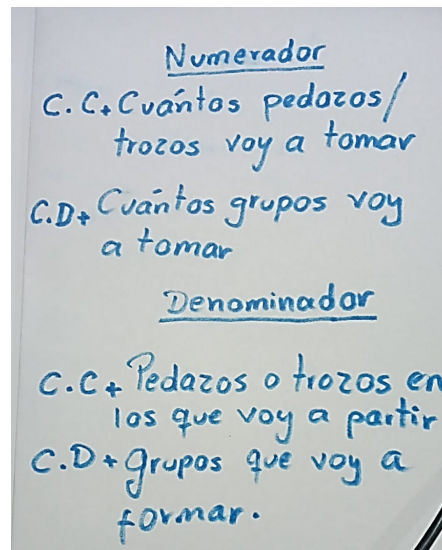 Numerador
C.C. Cuántos pedazos/
trozos voy a tomar
C.D+ Cuántos grupos voy
a tomar
Denominador
C.C+ Pedazos o trozos en
los que voy a partir
C.D+ grupos que voy a
formar.